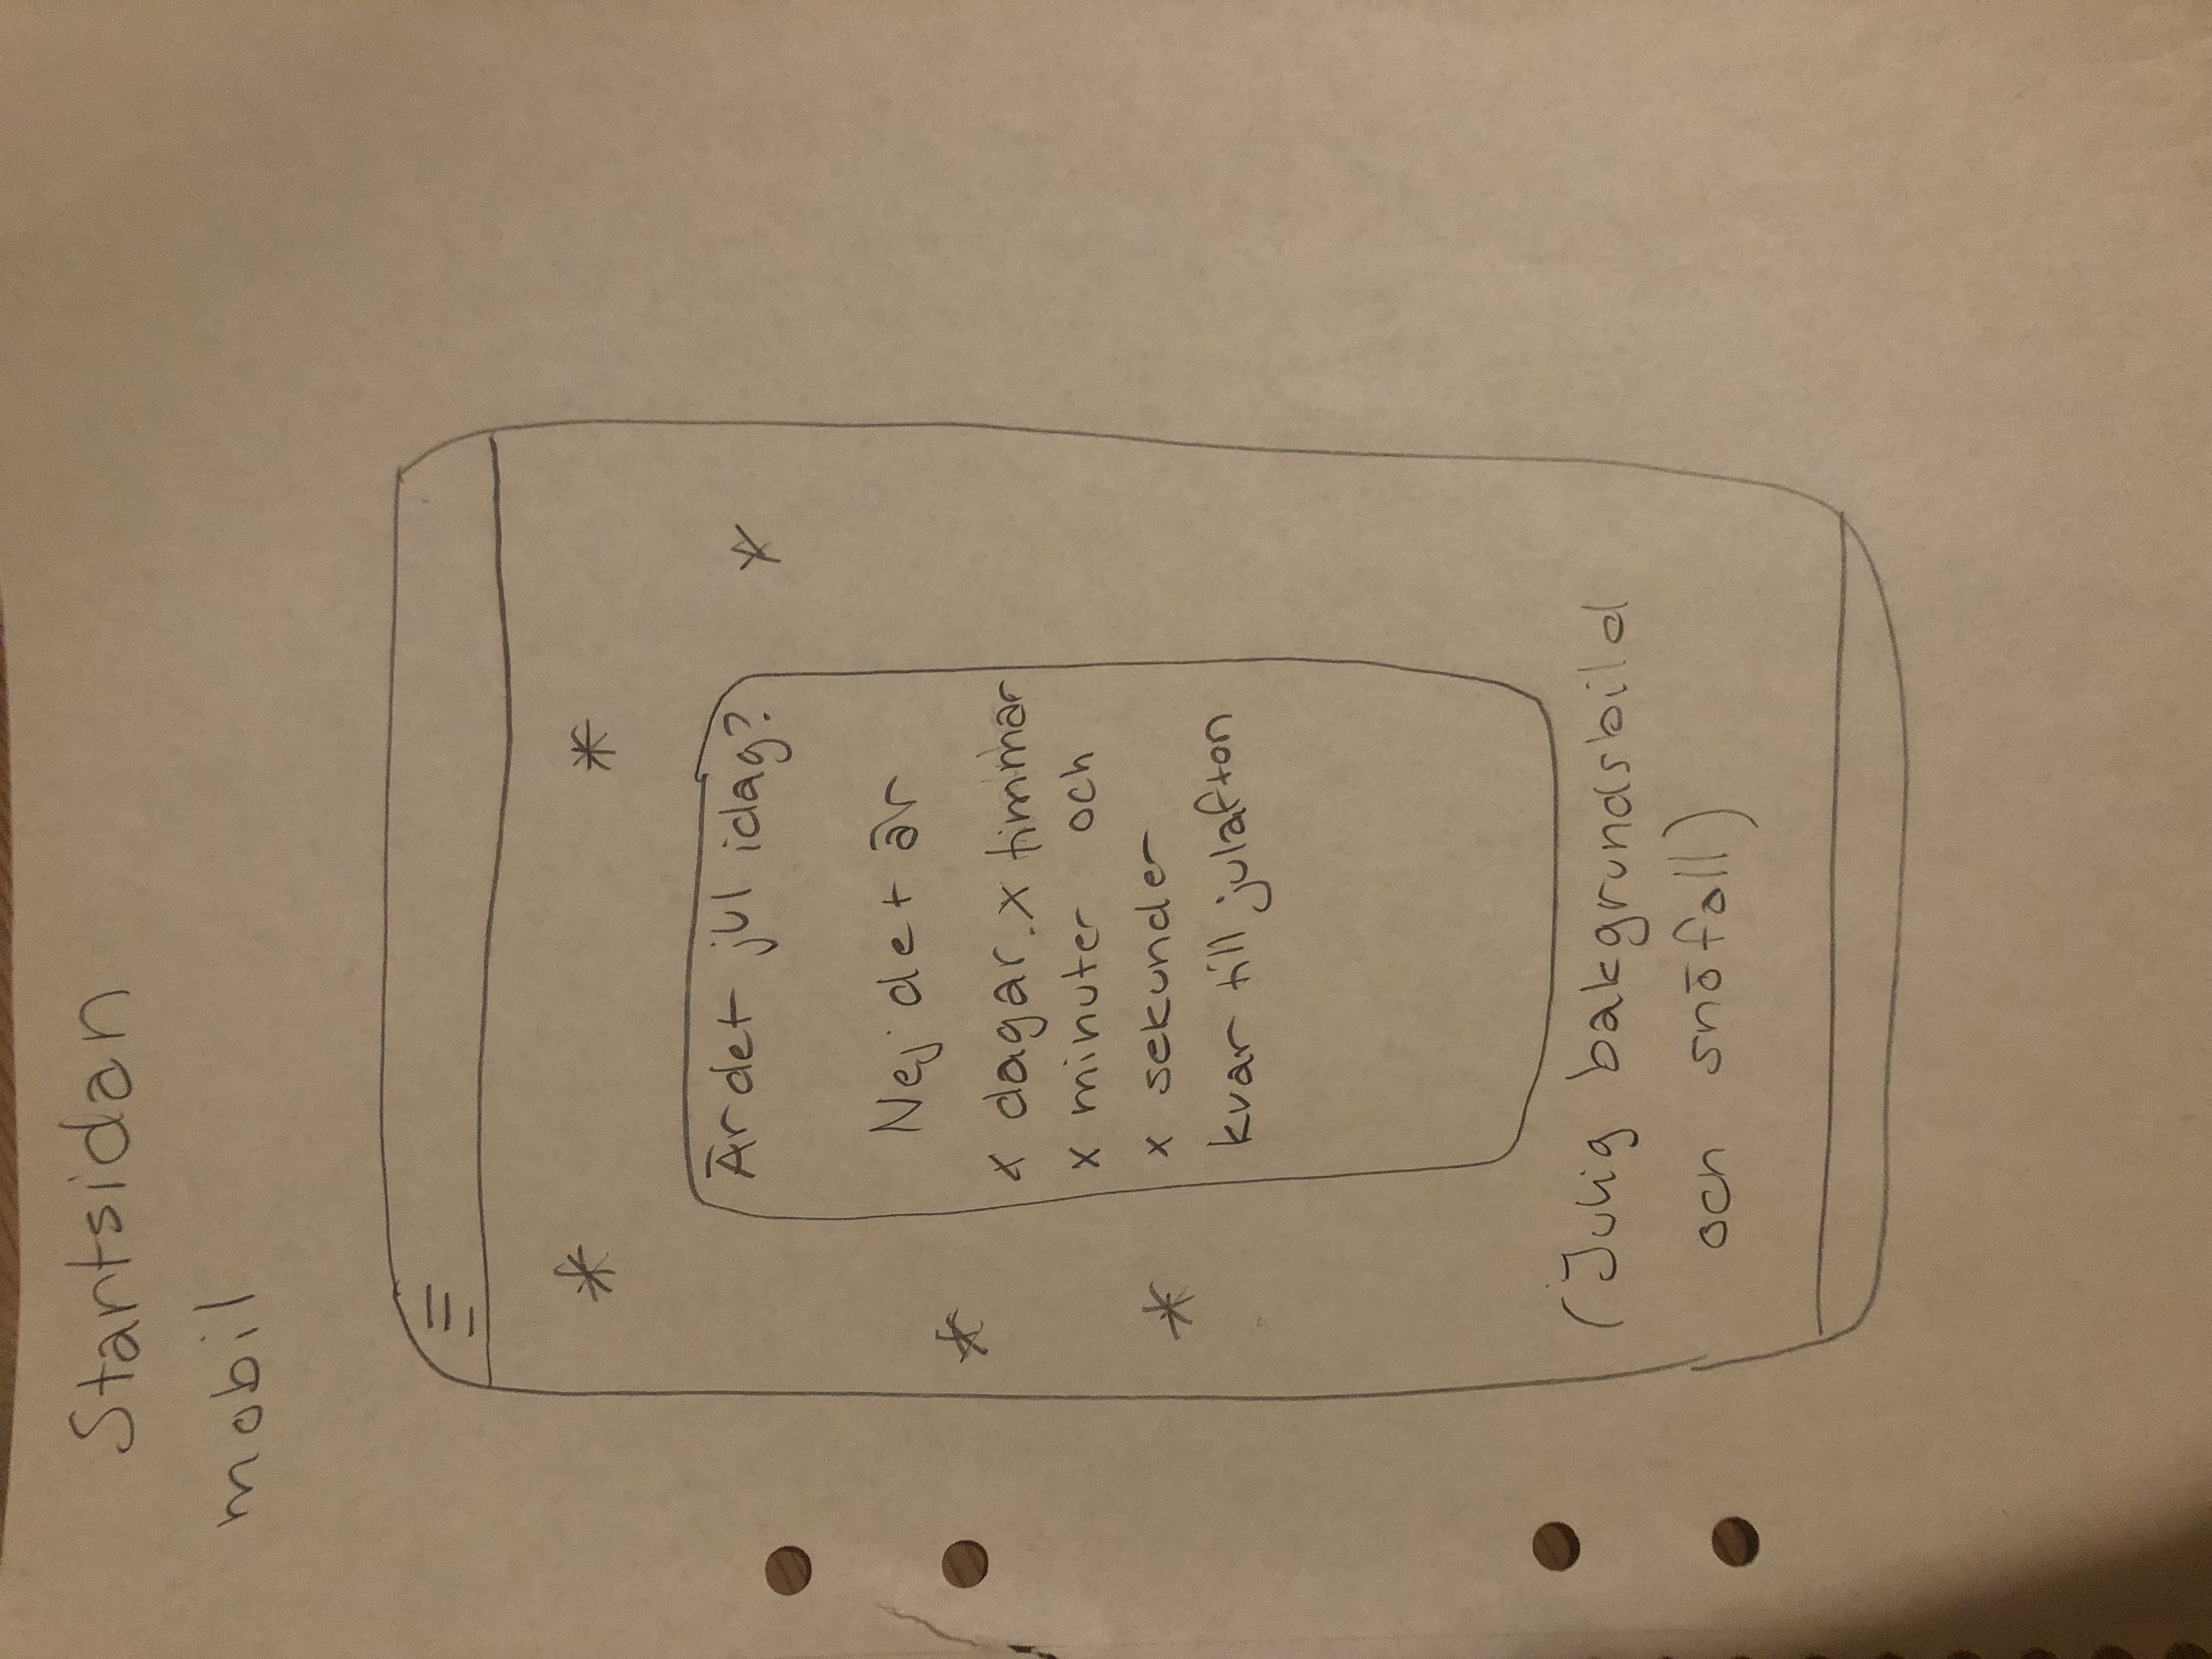 Startsidan
mobil
Är det jul idag?
Nej det är
x dagar. x timmar
x minuter och
x sekunder
kvar till julafton
(Julig bakgrundsbild
och snöfall)